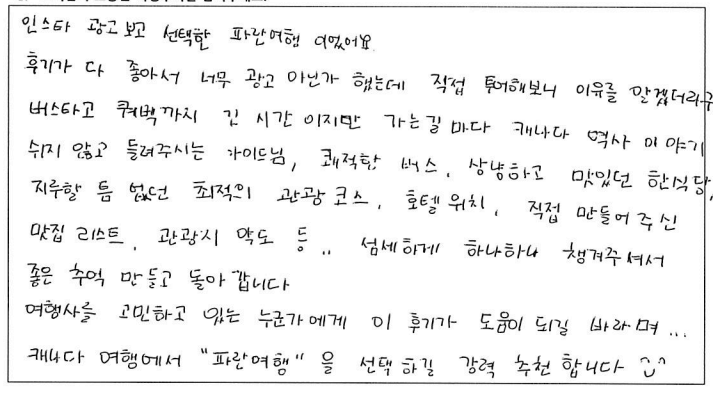 인스타 광고보고 선택한 파란여행 이였어요.
후기가 다 좋아서 너무 광고 아닌가 했는데 직접 투어해보니 이유를 알겠더라구
버스타고 퀘벡까지 긴 시간 이지만 가는길 마다 캐나다 역사 이야기
쉬지 않고 들려주시는 가이드님, 쾌적한 버스, 상냥하고 맛있던 한식당,
지루할 틈 없던 최적의 관광 코스, 호텔 위치, 직접 만들어 주신
맛집 리스트, 관광지 약도 등.. 섬세하게 하나하나 챙겨주셔서
좋은 추억 만들고 돌아 갑니다
여행사를 고민하고 있는 누군가에게 이 후기가 도움이 되길 바라며...
캐나다 여행에서 "파란여행" 을 선택하길 강력 추천 합니다 ^^